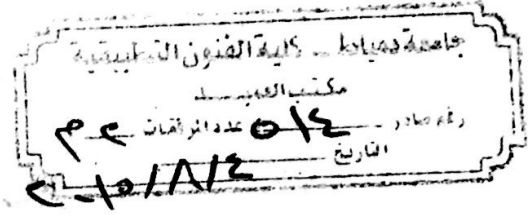 جامعة دمياط - كلية الفنون التطبيقية
مكتب العميد
رقم صادر ٥١٤ عدد المرفقات
التاريخ ٢٠١٥/٨/٤